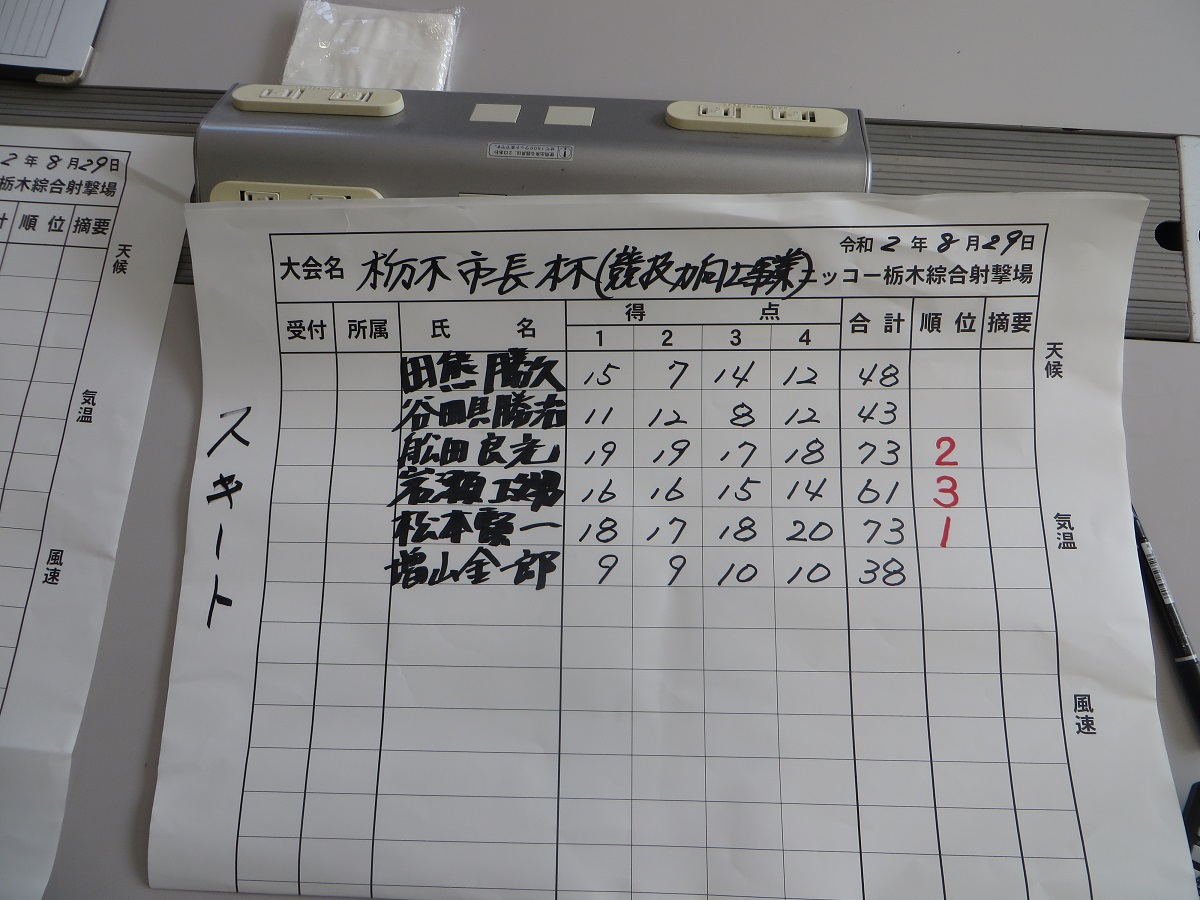 2年8月29日
栃木綜合射撃場
計 順位 摘要
天候
気温
風速
令和2年8月29日
大会名 栃木市長杯(競技力向上事業)ニッコー栃木綜合射撃場
受付 所属 氏名 得点 合計 順位 摘要
1 2 3 4
田熊勝久 15 7 14 12 48
谷田貝勝治 11 12 8 12 43
舩田良光 19 19 17 18 73 2
岩瀬 16 16 15 14 61 3
松本賢一 18 17 18 20 73 1
増山金一郎 9 9 10 10 38
スキート
天候
気温
風速